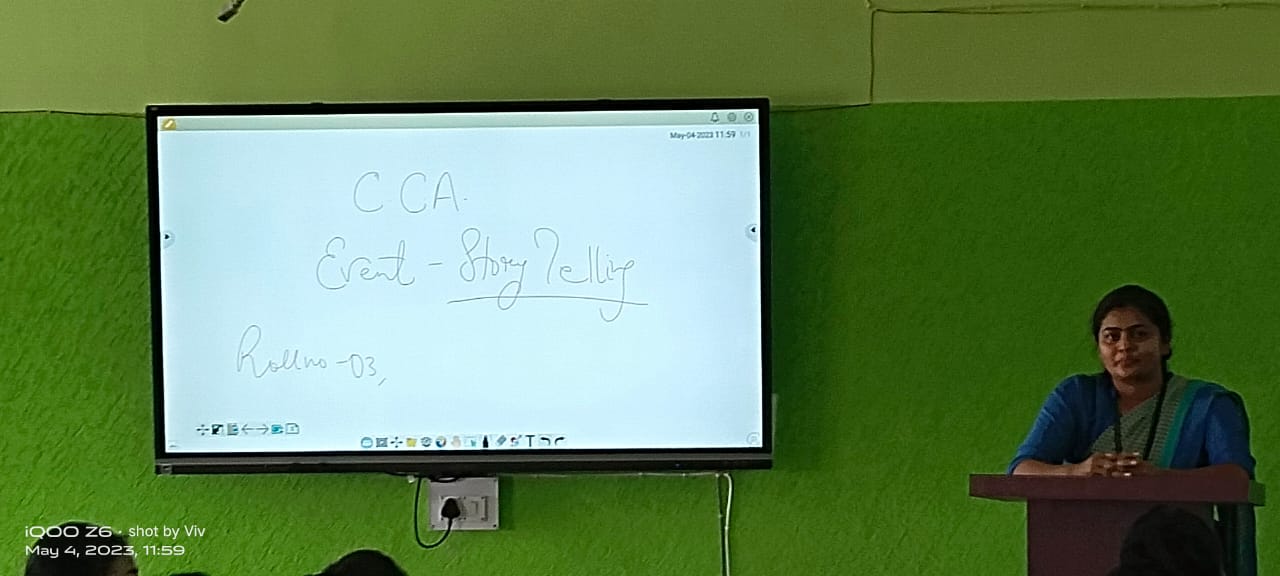 May-04-2023 11:59 1/1
C CA.
Event - Story Telling
Rollno - 03,
T
iQOO Z6 · shot by Viv
May 4, 2023, 11:59